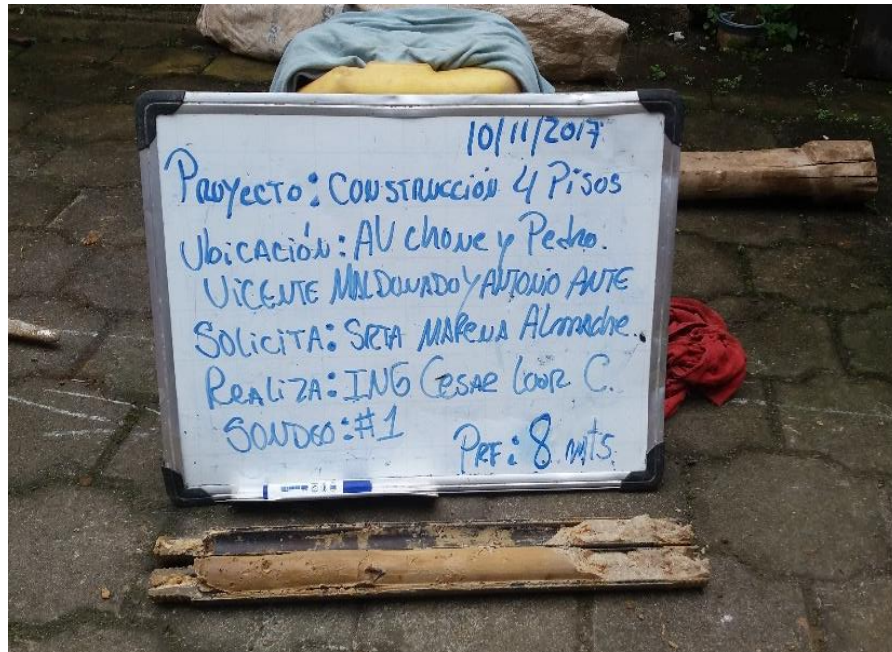 10/11/2017
Proyecto: Construcción 4 Pisos
Ubicación: AV chone y Pedro.
Vicente Maldonado y Antonio Ante
Solicita: SRTA MARENA Almache.
Realiza: ING Cesar Loor C.
Sondeo: #1
Prf: 8 mts.